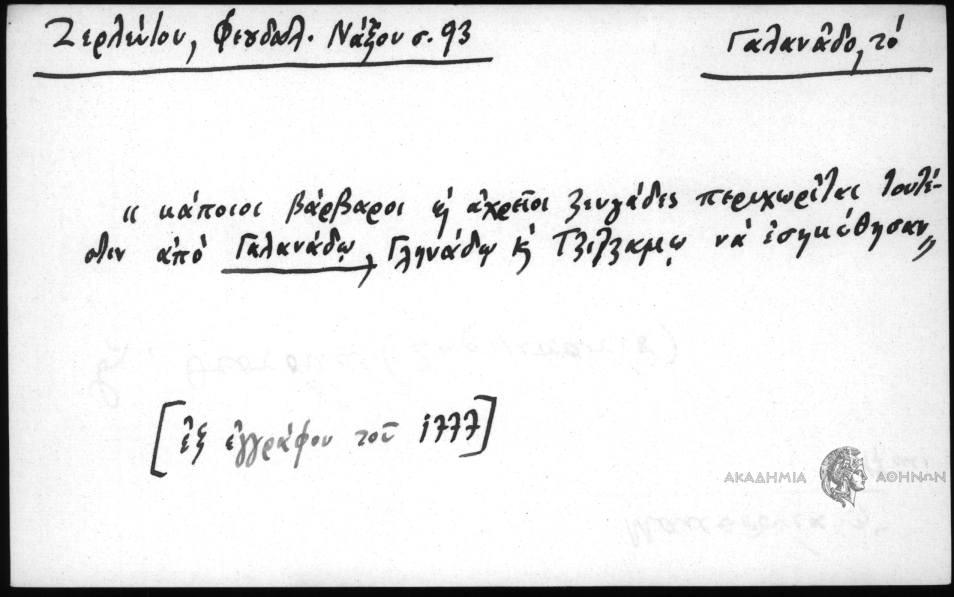 Ζερλέντου, Φεουδαλ. Νάξου σ. 93
Γαλανᾶδο, τό
"κάποιοι βάρβαροι ἢ ἀχρεῖοι ζευγάδες περιχωρῖται τουτέ-
στιν ἀπό Γαλανάδῳ, Γληνάδῳ κ̓ Τζιτζαμῳ νά ἐσηκώθησαν"
[ἐξ ἐγγράφου τοῦ 1777]
ΑΚΑΔΗΜΙΑ ΑΘΗΝΩΝ